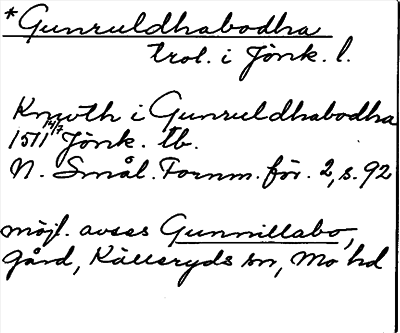 *Gunruldhabodha
trol. i Jönk. l.
Knwth i Gunruldhabodha
1511 14/7 Jönk. tb.
N. Smål. Fornm. för. 2, s. 92
möjl. avses Gunnillabo,
gård, Källeryds sn, Mo hd